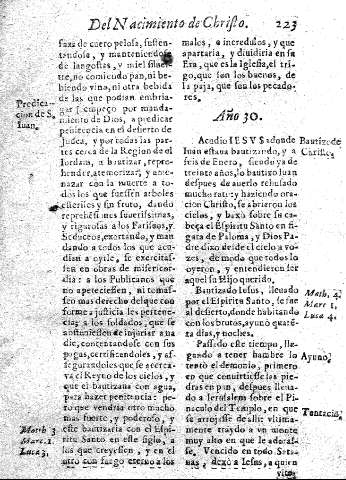 Del Nacimiento de Christo. 223
saas de cuero pelosa, susten-
tandose, y manteniendose
de langostas, y miel silues-
tre, no comiendo pan, ni be-
biendo vino, ni otra bebida
de las que podian embria-
gar: empeço por manda-
miento de Dios, a predicar
penitencia en el desierto de
Iudea, y por todas las par-
tes cerca de la Region de el
Iordam, a bautizar, repre-
hender, atemorizar, y ame-
nazar con la muerte a to-
dos los que fuessen arboles
esteriles y sin fruto, dando
reprehensiones seuerissimas,
y rigurosas a los Fariseos, y
Seduceos, exortando, y man
dando a todos los que acu-
dian a oyrle, se exercitas-
sen en obras de misericor-
dia: a los Publicanos que
no apeteciessen, ni tomas-
sen mas derecho del que con
forme a justicia les pertene-
cia: a los soldados, que se
abstuuiessen de injuriar a na
die, contentandose con sus
pagas, certificandoles, y as-
segurandoles que se acerca-
va el Reyno de los cielos, y
que el bautizana con agua,
para hazer penitencia: pe-
ro que vendria otro mucho
mas fuerte, y poderoso, y
este bautizaria con el Espi-
ritu Santo en este siglo, a
los que creyessen, y en el
otro con fuego eterno a los
Predica-
cion de S.
Iuan.
Math 3
Marc. 1.
Luca 3.
malos, e incredulos, y que
apartaria, y dividiria en su
Era, que es la Iglesia, el tri-
go, que son los buenos, de
la paja, que son los pecado-
res.
Año 30.
Acudio IESVS adonde
Iuan estaua bautizando, y a
seis de Enero, siendo ya de
treinta años, lo bautizo Iuan
despues de auerlo rehusado
mucho rato: y haziendo ora
cion Christo, se abrieron los
cielos, y baxò sobre su ca-
beça el Espiritu Santo en fi-
gura de Paloma, y Dios Pa-
dre dixo desde el cielo a vo-
zes, de modo que todos lo
oyeron, y entendieron ser
aquel su Hijo querido.
Bautizado Iesus, lleuado
por el Espiritu Santo, se fue
al desierto, donde habitando
con los brutos, ayunò quaren
ta dias, y noches.
Passado este tiempo, lle-
gando a tener hambre lo
tentò el demonio, primero
en que conuirtiesse las pie-
dras en pan, despues lleuan
do a Ierusalem sobre el Pi-
naculo del Templo, en que
se arrojasse de alli: vltima-
mente traydo a vn monte
muy alto en que le adoras-
se. Vencido en todo Sata-
nas, dexò a Iesus, a quien
vito
Bautizo de
Christo.
Math. 4.
Marc 1.
Luca 4.
Ayuno.
Tentacio.